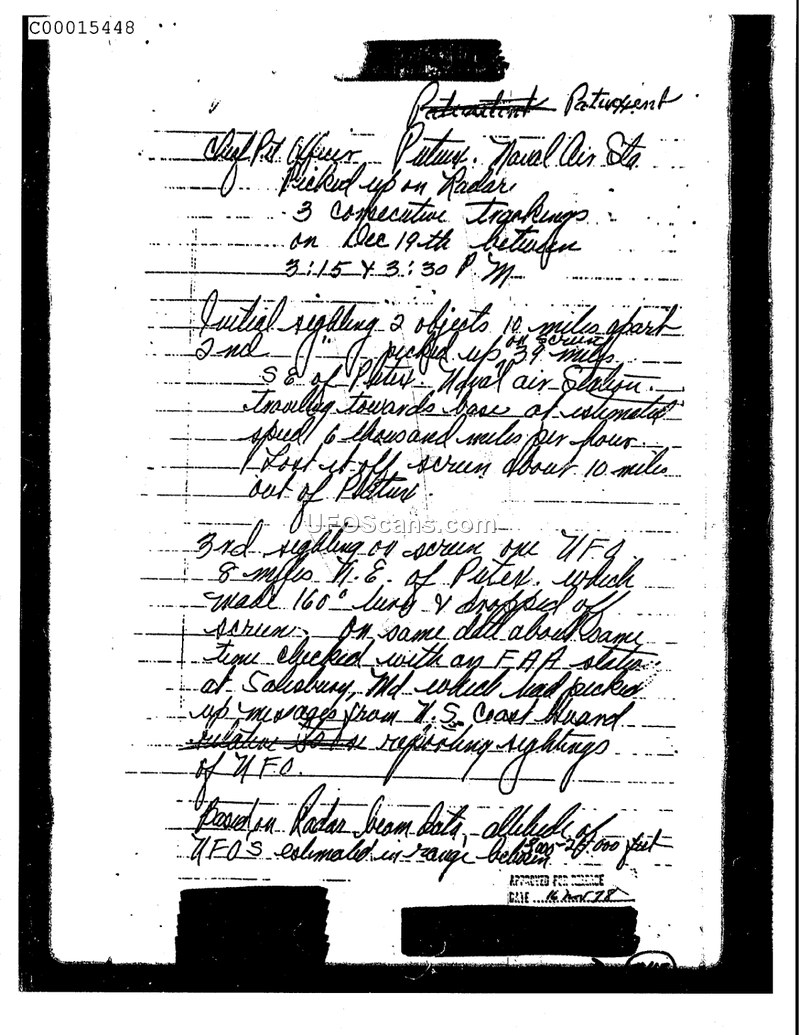 C00015448
Patuxent
Chief Pet Officer Putux. Naval Air Sta
Picked up on Radar
3 consecutive trackings
on Dec 19th between
3:15 & 3:30 P.M.
Initial sighting 2 objects 10 miles apart
on screen
2nd " picked up 39 miles
S E of Putux. Naval air Station.
traveling towards base at estimated
speed 6 thousand miles per hour
Lost it off screen about 10 miles
out of Putux.
UFOScans.com
3rd sighting on screen one UFO
8 miles N.E. of Putex. which
made 160° turn & dropped off
screen. On same date about same
time checked with an FAA station
at Salisbury, Md which had picked
up messages from U.S. Coast Guard
reporting sightings
of UFO.
Based on Radar beam data, altitude of
UFO'S estimated in range between feet
APPROVED FOR RELEASE
DATE 16 Nov 78